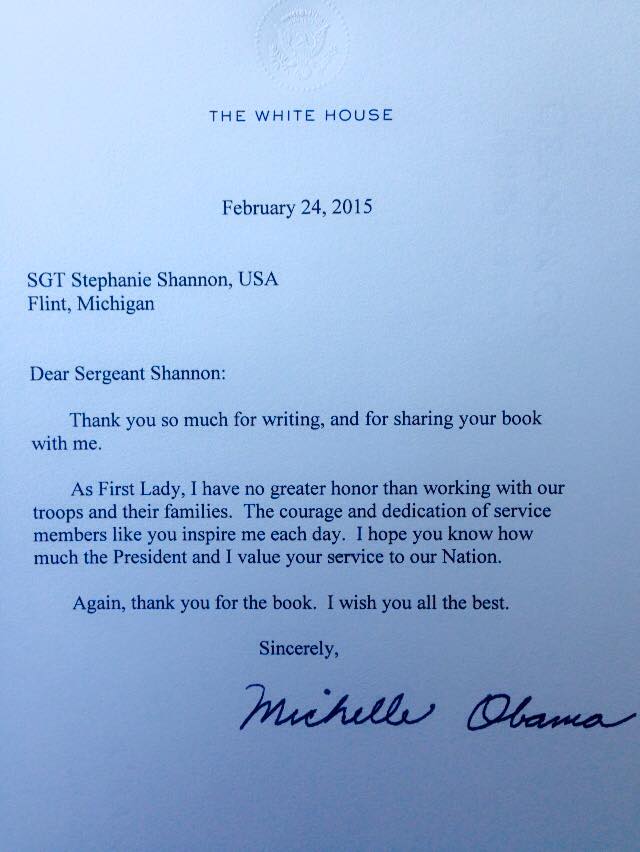 THE WHITE HOUSE
February 24, 2015
SGT Stephanie Shannon, USA
Flint, Michigan
Dear Sergeant Shannon:
Thank you so much for writing, and for sharing your book
with me.
As First Lady, I have no greater honor than working with our
troops and their families.  The courage and dedication of service
members like you inspire me each day.  I hope you know how
much the President and I value your service to our Nation.
Again, thank you for the book.  I wish you all the best.
Sincerely,
Michelle Obama